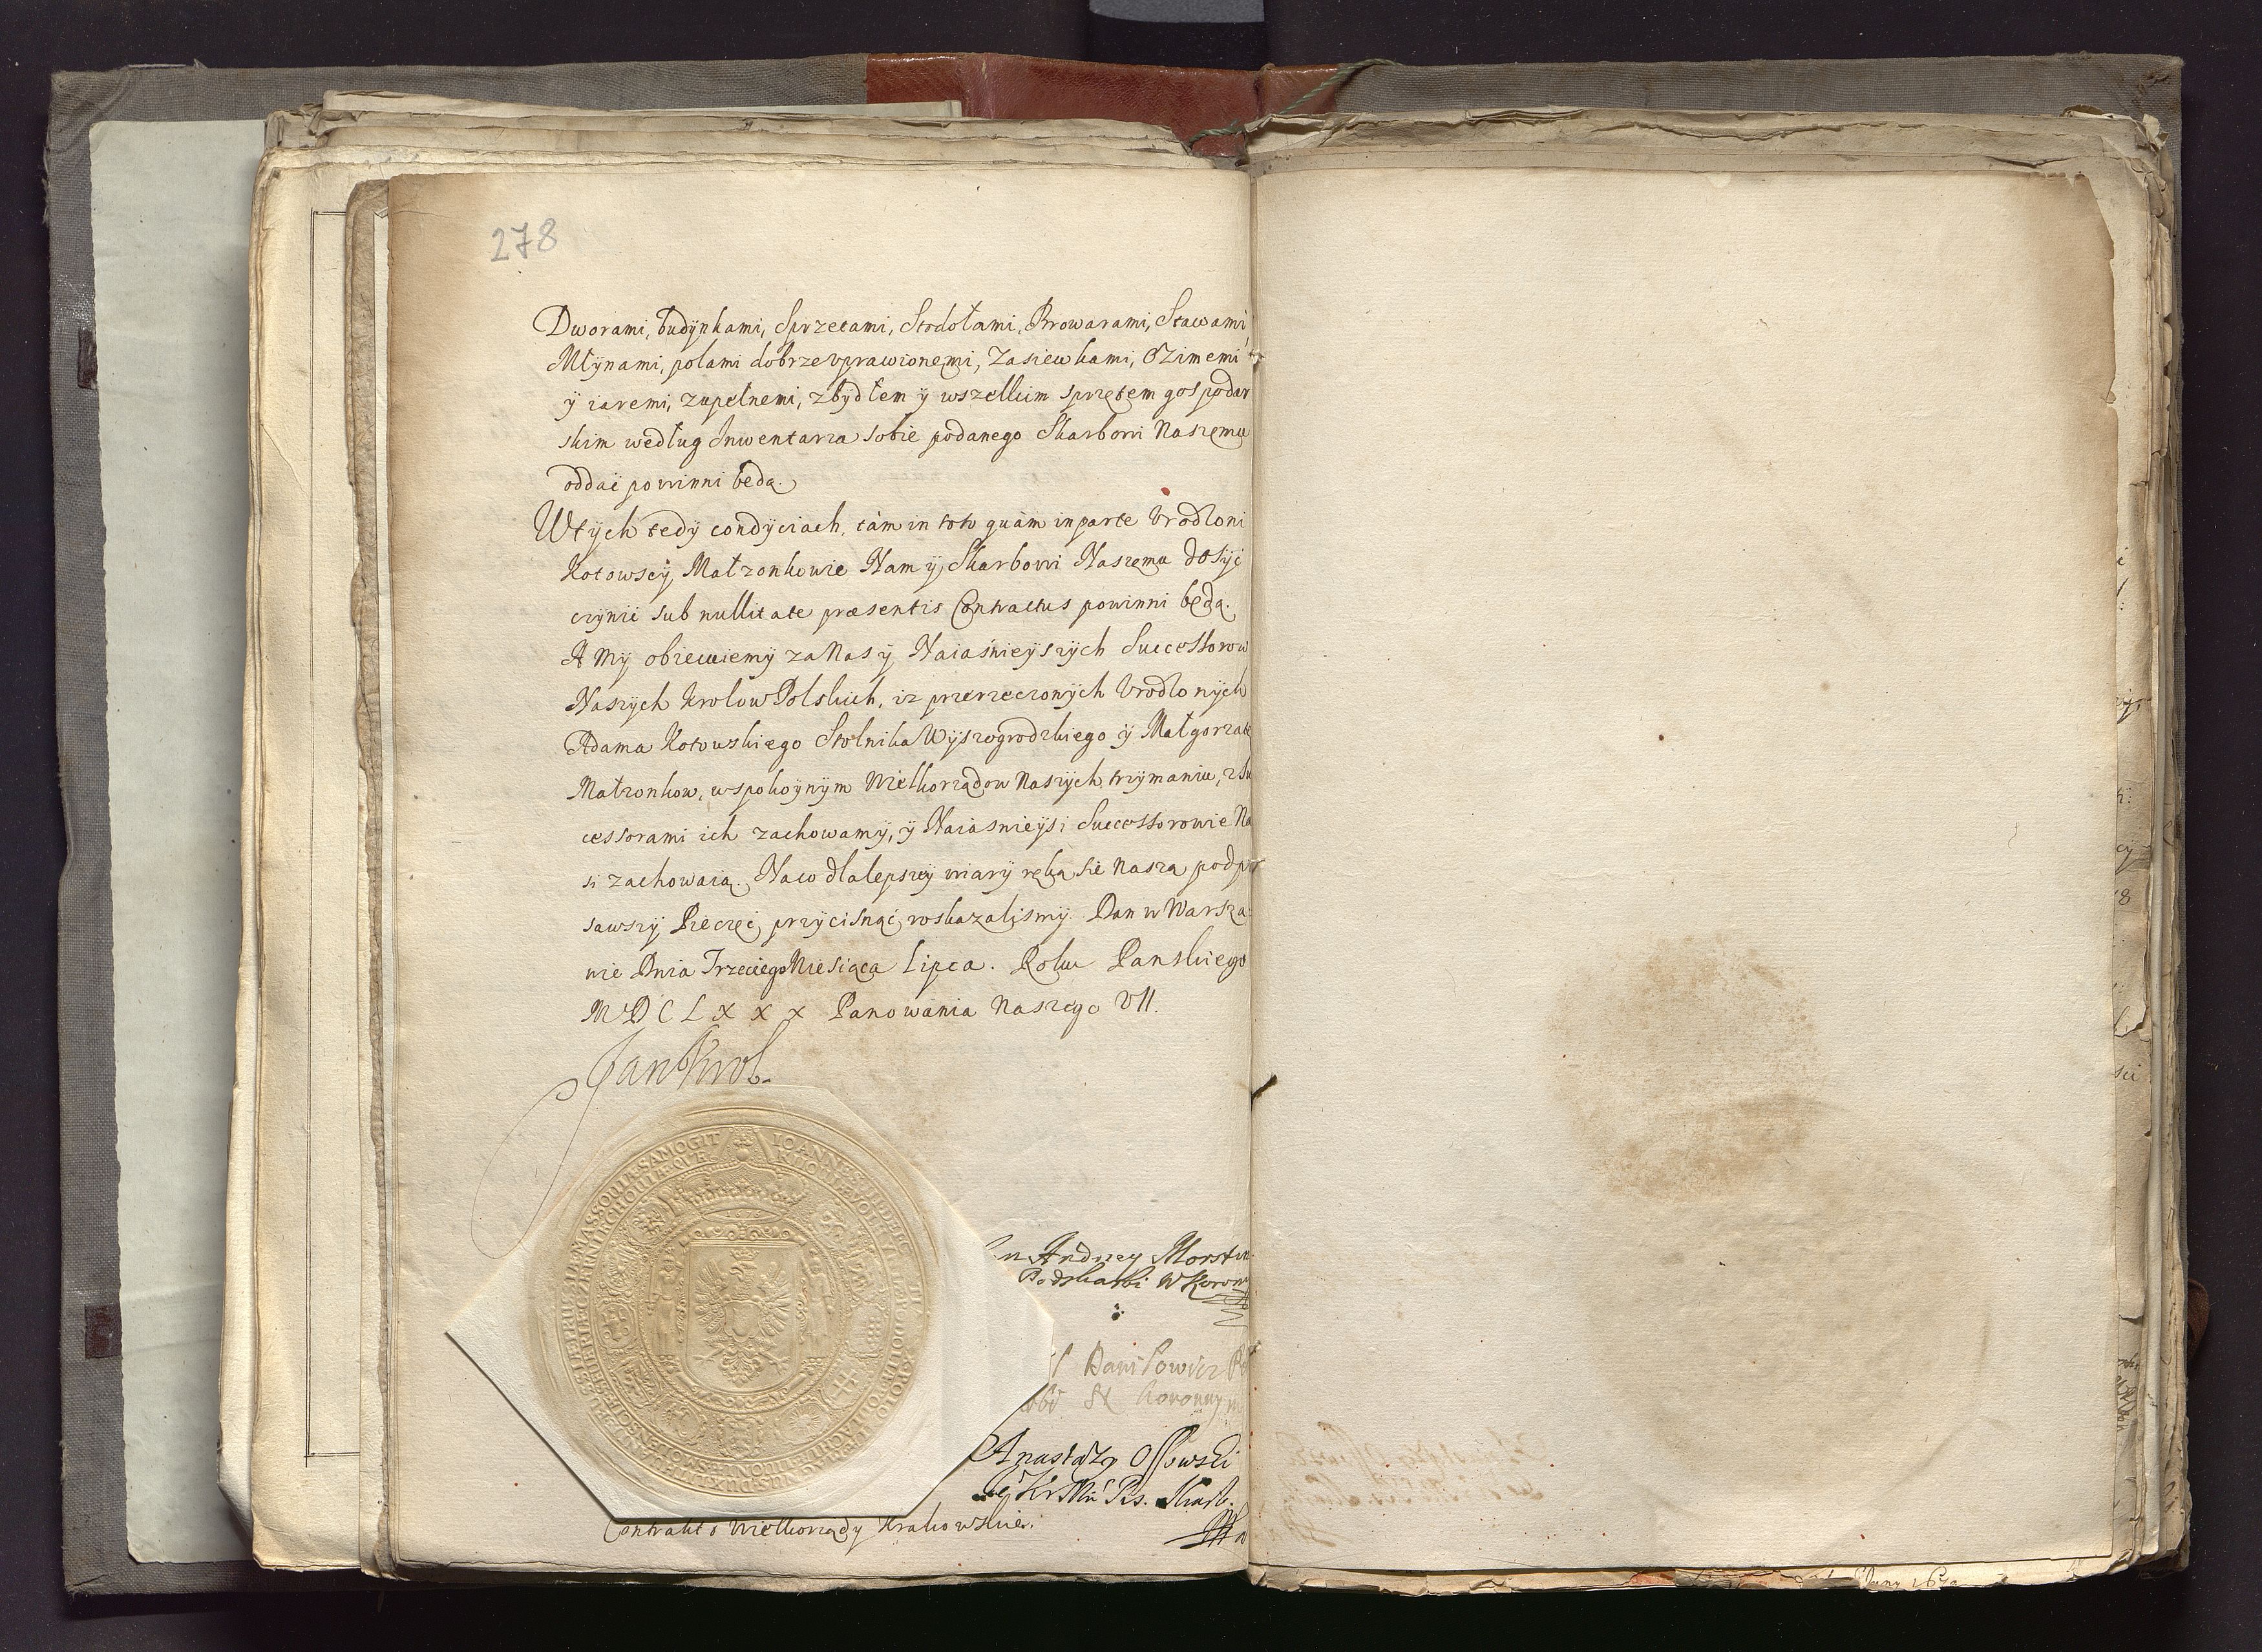 278
Dworami, budÿnkami, Sprzetami, Stodołami, Browarami, Stawami,
Młÿnami, polami dobrze vprawionemi, Zasiewkami, Ozimemi
ÿ iaremi, zupełnemi, zbÿdłem ÿ wszelkim sprzętem gospodar
skim według Inwentarza sobie podanego Skarbowi Naszemu
oddać powinni będą.
Wtÿch tedÿ condÿciach, tàm in toto quàm in parte Vrodzoni
Kotowscÿ, Małzonkowie Nam ÿ Skarbowi Naszemu dosÿć
czÿnić sub nullitate præsentis Contractus powinni będą.
A Mÿ obiecuiemÿ za Nas ÿ Naiaśnieÿszÿch Successorow
Naszÿch Krolow Polskich, iz przerzeczonÿch Vrodzonÿch
Adama Kotowskiego Stolnika Wÿszogrodzkiego ÿ Małgorzatę
Małzonkow, w spokoÿnÿm Wielkorządow Naszÿch trzÿmaniu, z Su
cessorami ich zachowamÿ, ÿ Naiasnieÿsi Successorowie Na
si zachowaią. Naco dla lepszeÿ wiarÿ ręką się Naszą podpi
sawszÿ, Pieczęć przÿcisnąć roskazalismÿ. Dan w Warsza
wie Dnia Trzeciego Miesiąca Lipca. Roku Panskiego
MDCLXXX Panowania Naszego VII.
Jan Krol
IOANNES III DEI
SAMOGIT
1676
Andrzey Morstin
Podskarbi W Koronny
Daniłowicz
Koronny
Anastazy Ossowski
JeKrMci Pis. Skarb.
Contrakt o Wielkorządy Krakowskie.